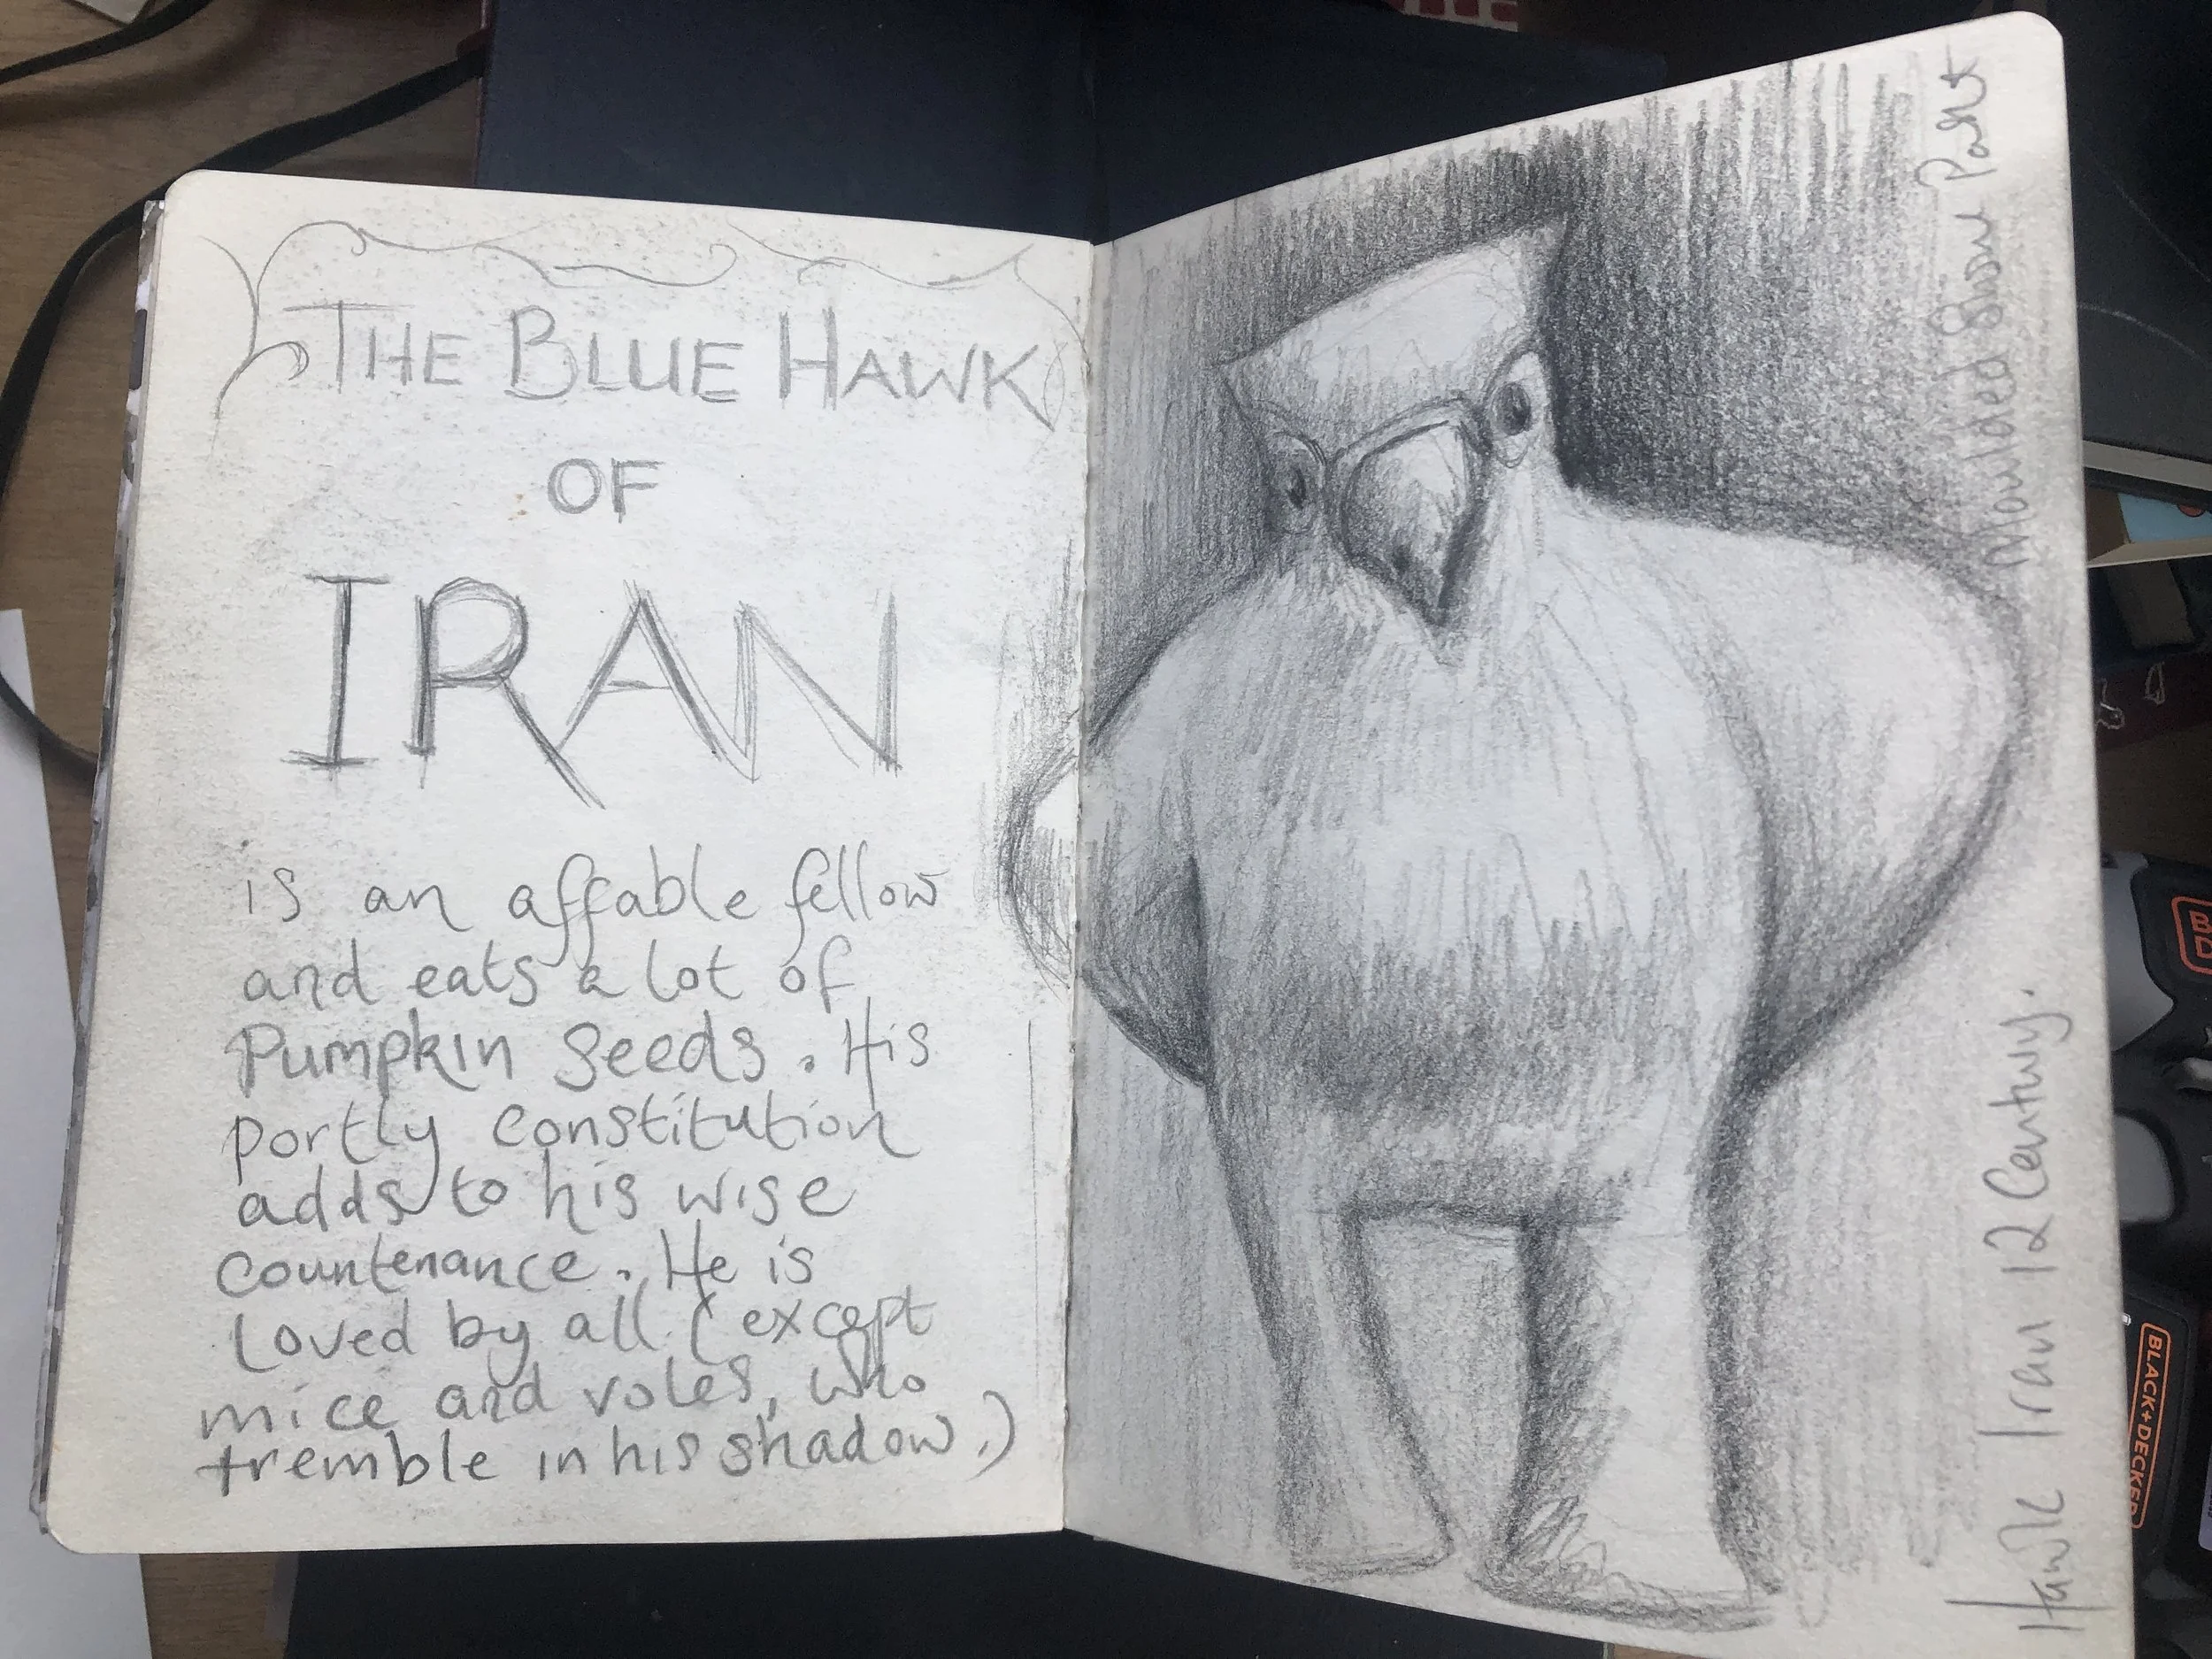 THE BLUE HAWK
OF
IRAN
is an affable fellow
and eats a lot of
Pumpkin Seeds. His
portly constitution
adds to his wise
countenance. He is
loved by all (except
mice and voles, who
tremble in his shadow.)
Hawk Iran 12 Century.
Moulded Stone Paste
BLACK+DECKER